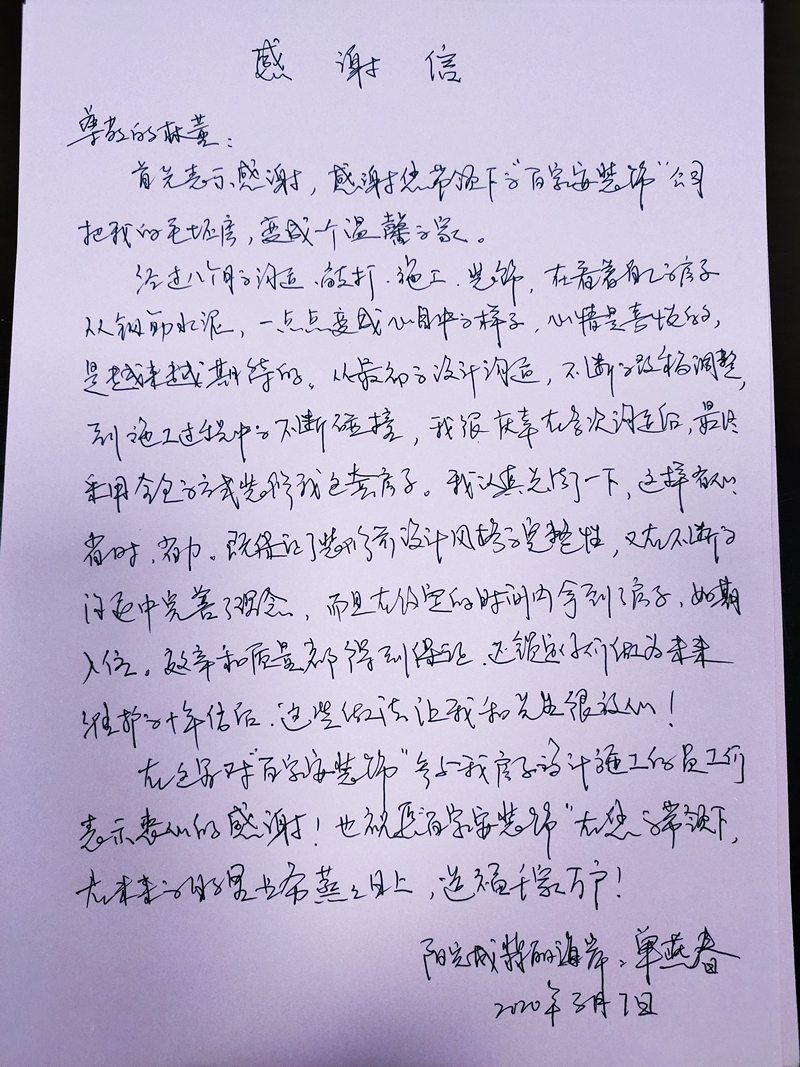 感谢信
尊敬的林董:
首先表示感谢,感谢您带领下的"百家安装饰"公司
把我的毛坯房,变成一个温馨的家。
经过八个月的沟通、敲打、施工、装饰,在看着自己的房子
从钢筋水泥,一点点变成心目中的样子,心情是喜悦的,
是越来越期待的。从最初的设计沟通,不断的改稿调整,
到施工过程中的不断碰撞,我很庆幸在多次沟通后,最终
采用全包的方式装修我这套房子。我认真总结了一下,这样省心、
省时、省力。既保证了装修前设计风格的完整性,又在不断的
沟通中完善了理念,而且在约定的时间内拿到了房子,如期
入住。效率和质量都得到保证,还锁定了你们做为未来
维护的十年售后,这些做法让我和先生很放心!
在这里对"百家安装饰"参与我房子设计施工的员工们
表示衷心的感谢!也祝愿"百家安装饰"在您的带领下,
在未来的日子里蒸蒸日上,造福千家万户!
阳光城特丽海岸:单燕春
2020年3月7日